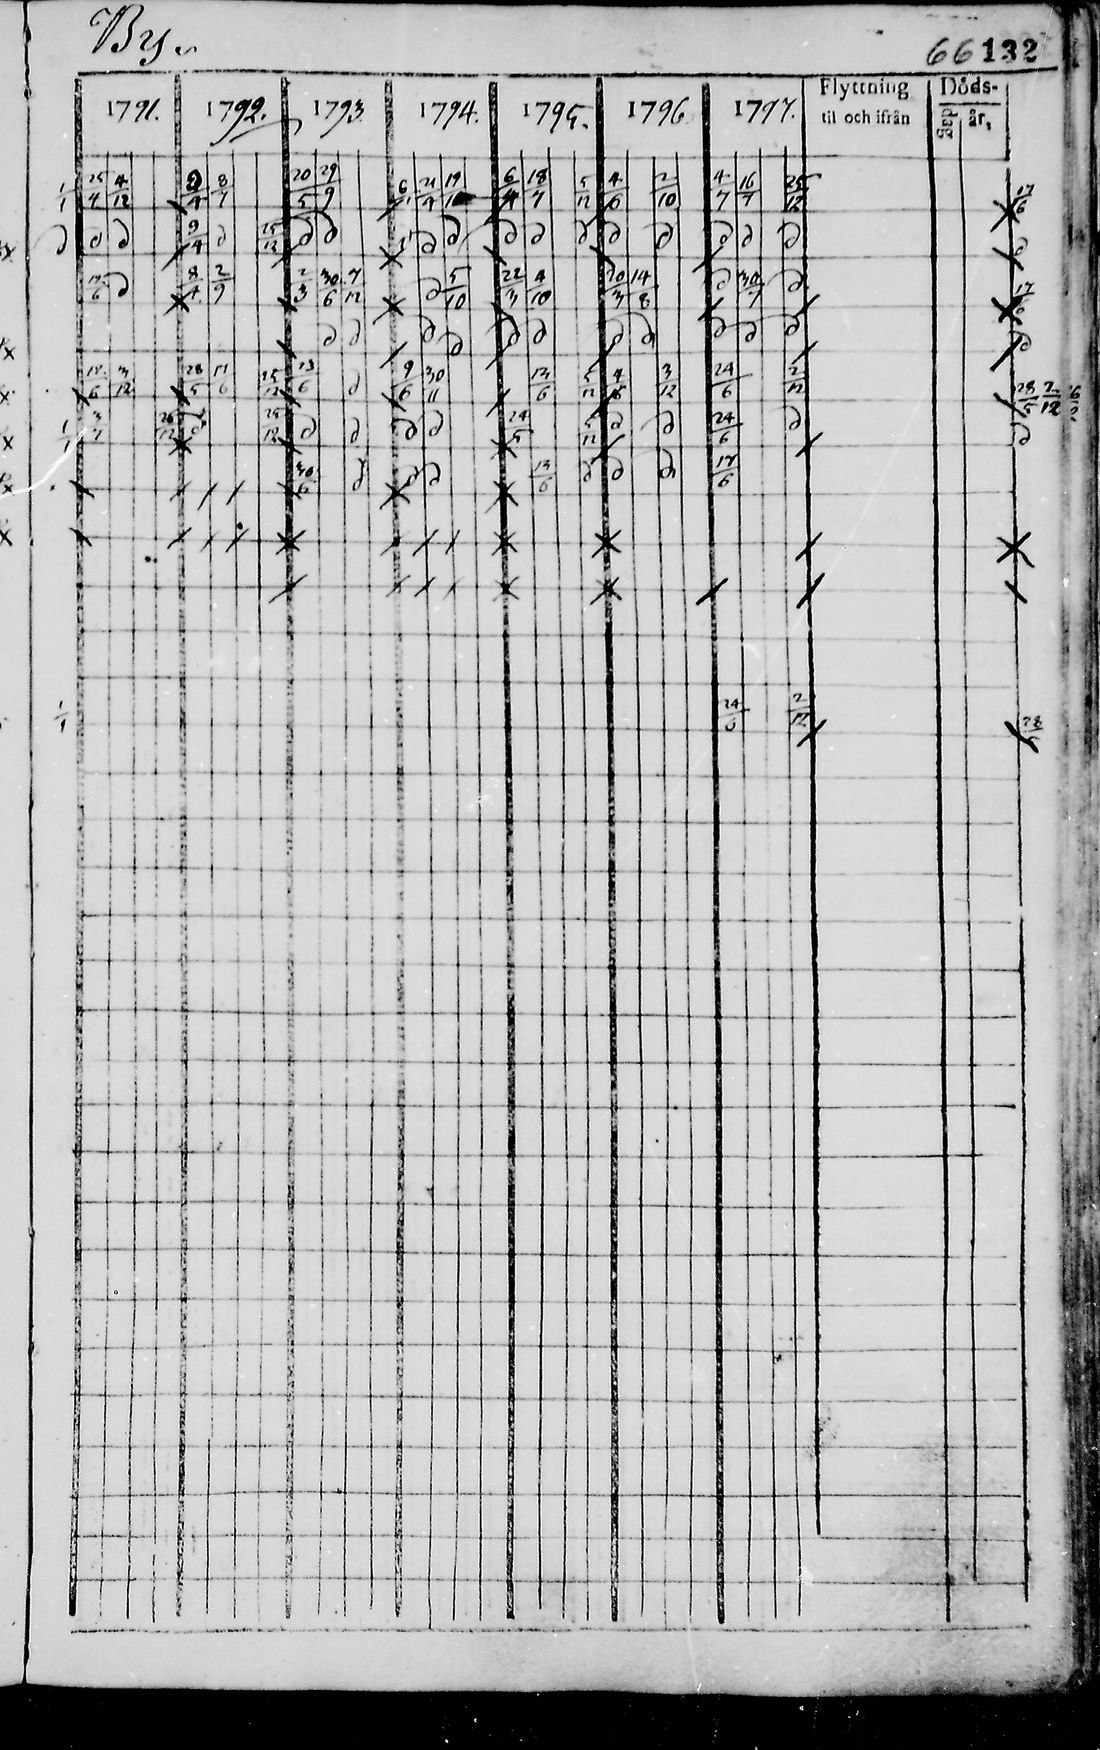 By.
66 132
1791. 1792. 1793. 1794. 1795. 1796. 1797. Flyttning til och ifrån Döds-år,
25/7 4/12 9/4 8/7 20/5 29/9 21/4 19/10 6/4 18/7 5/12 4/6 2/10 4/7 16/7 25/12 17/6
∂ ∂ ∂ 9/4 ∂ 25/12 ∂ ∂ ∂ ∂ ∂ ∂ ∂ ∂ ∂ ∂ ∂ ∂ ∂
17/6 ∂ 8/4 2/9 2/3 30/6 7/12 ∂ 5/10 22/3 4/10 20/3 14/8 ∂ 30/7 ∂ 17/6
∂ ∂ ∂ ∂ ∂ ∂ ∂ ∂ ∂ ∂ ∂ ∂
17/6 3/12 28/5 17/6 25/12 13/6 ∂ 9/6 30/11 13/6 5/12 4/6 3/12 24/6 2/12 28/5 2/12
1/1 3/7 26/12 ∂ 25/12 ∂ ∂ ∂ ∂ 24/5 5/12 ∂ ∂ 24/6 ∂ ∂
30/6 ∂ ∂ ∂ 13/6 ∂ ∂ ∂ 17/6
1/1 24/6 2/12